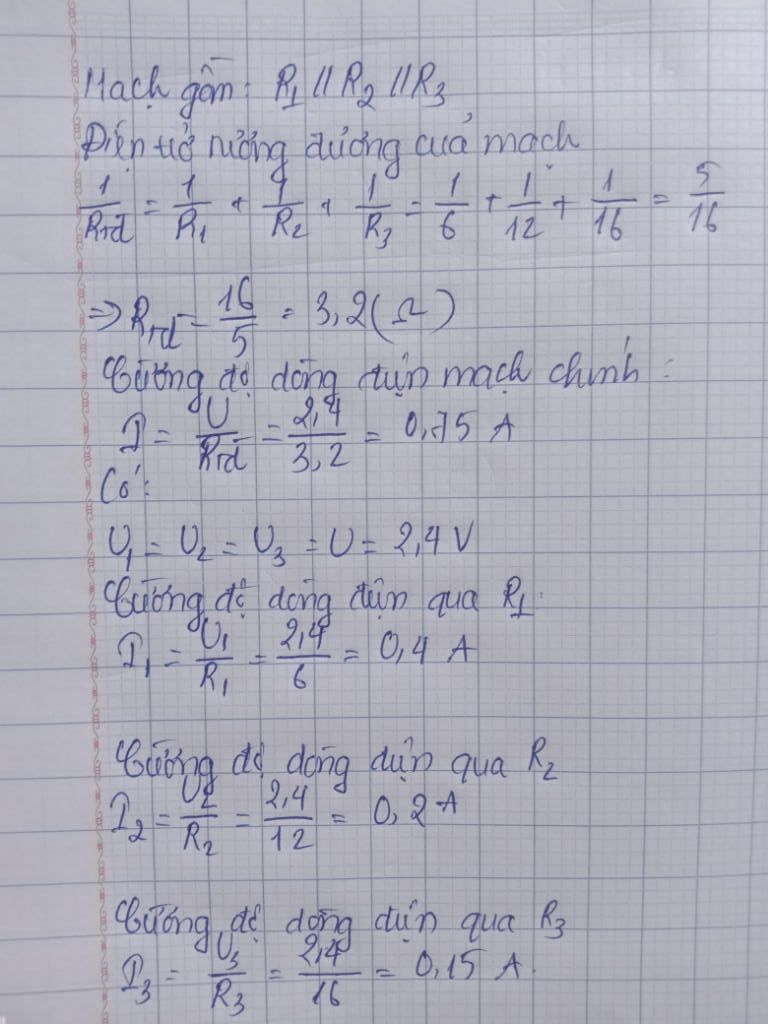 Mạch gồm: R₁ // R₂ // R₃
Điện trở tương đương của mạch
1/Rtđ = 1/R₁ + 1/R₂ + 1/R₃ = 1/6 + 1/12 + 1/16 = 5/16
=> Rtđ = 16/5 = 3,2 (Ω)
Cường độ dòng điện mạch chính:
I = U/Rtđ = 2,4/3,2 = 0,75 A
Có:
U₁ = U₂ = U₃ = U = 2,4 V
Cường độ dòng điện qua R₁:
I₁ = U₁/R₁ = 2,4/6 = 0,4 A
Cường độ dòng điện qua R₂
I₂ = U₂/R₂ = 2,4/12 = 0,2 A
Cường độ dòng điện qua R₃
I₃ = U₃/R₃ = 2,4/16 = 0,15 A.